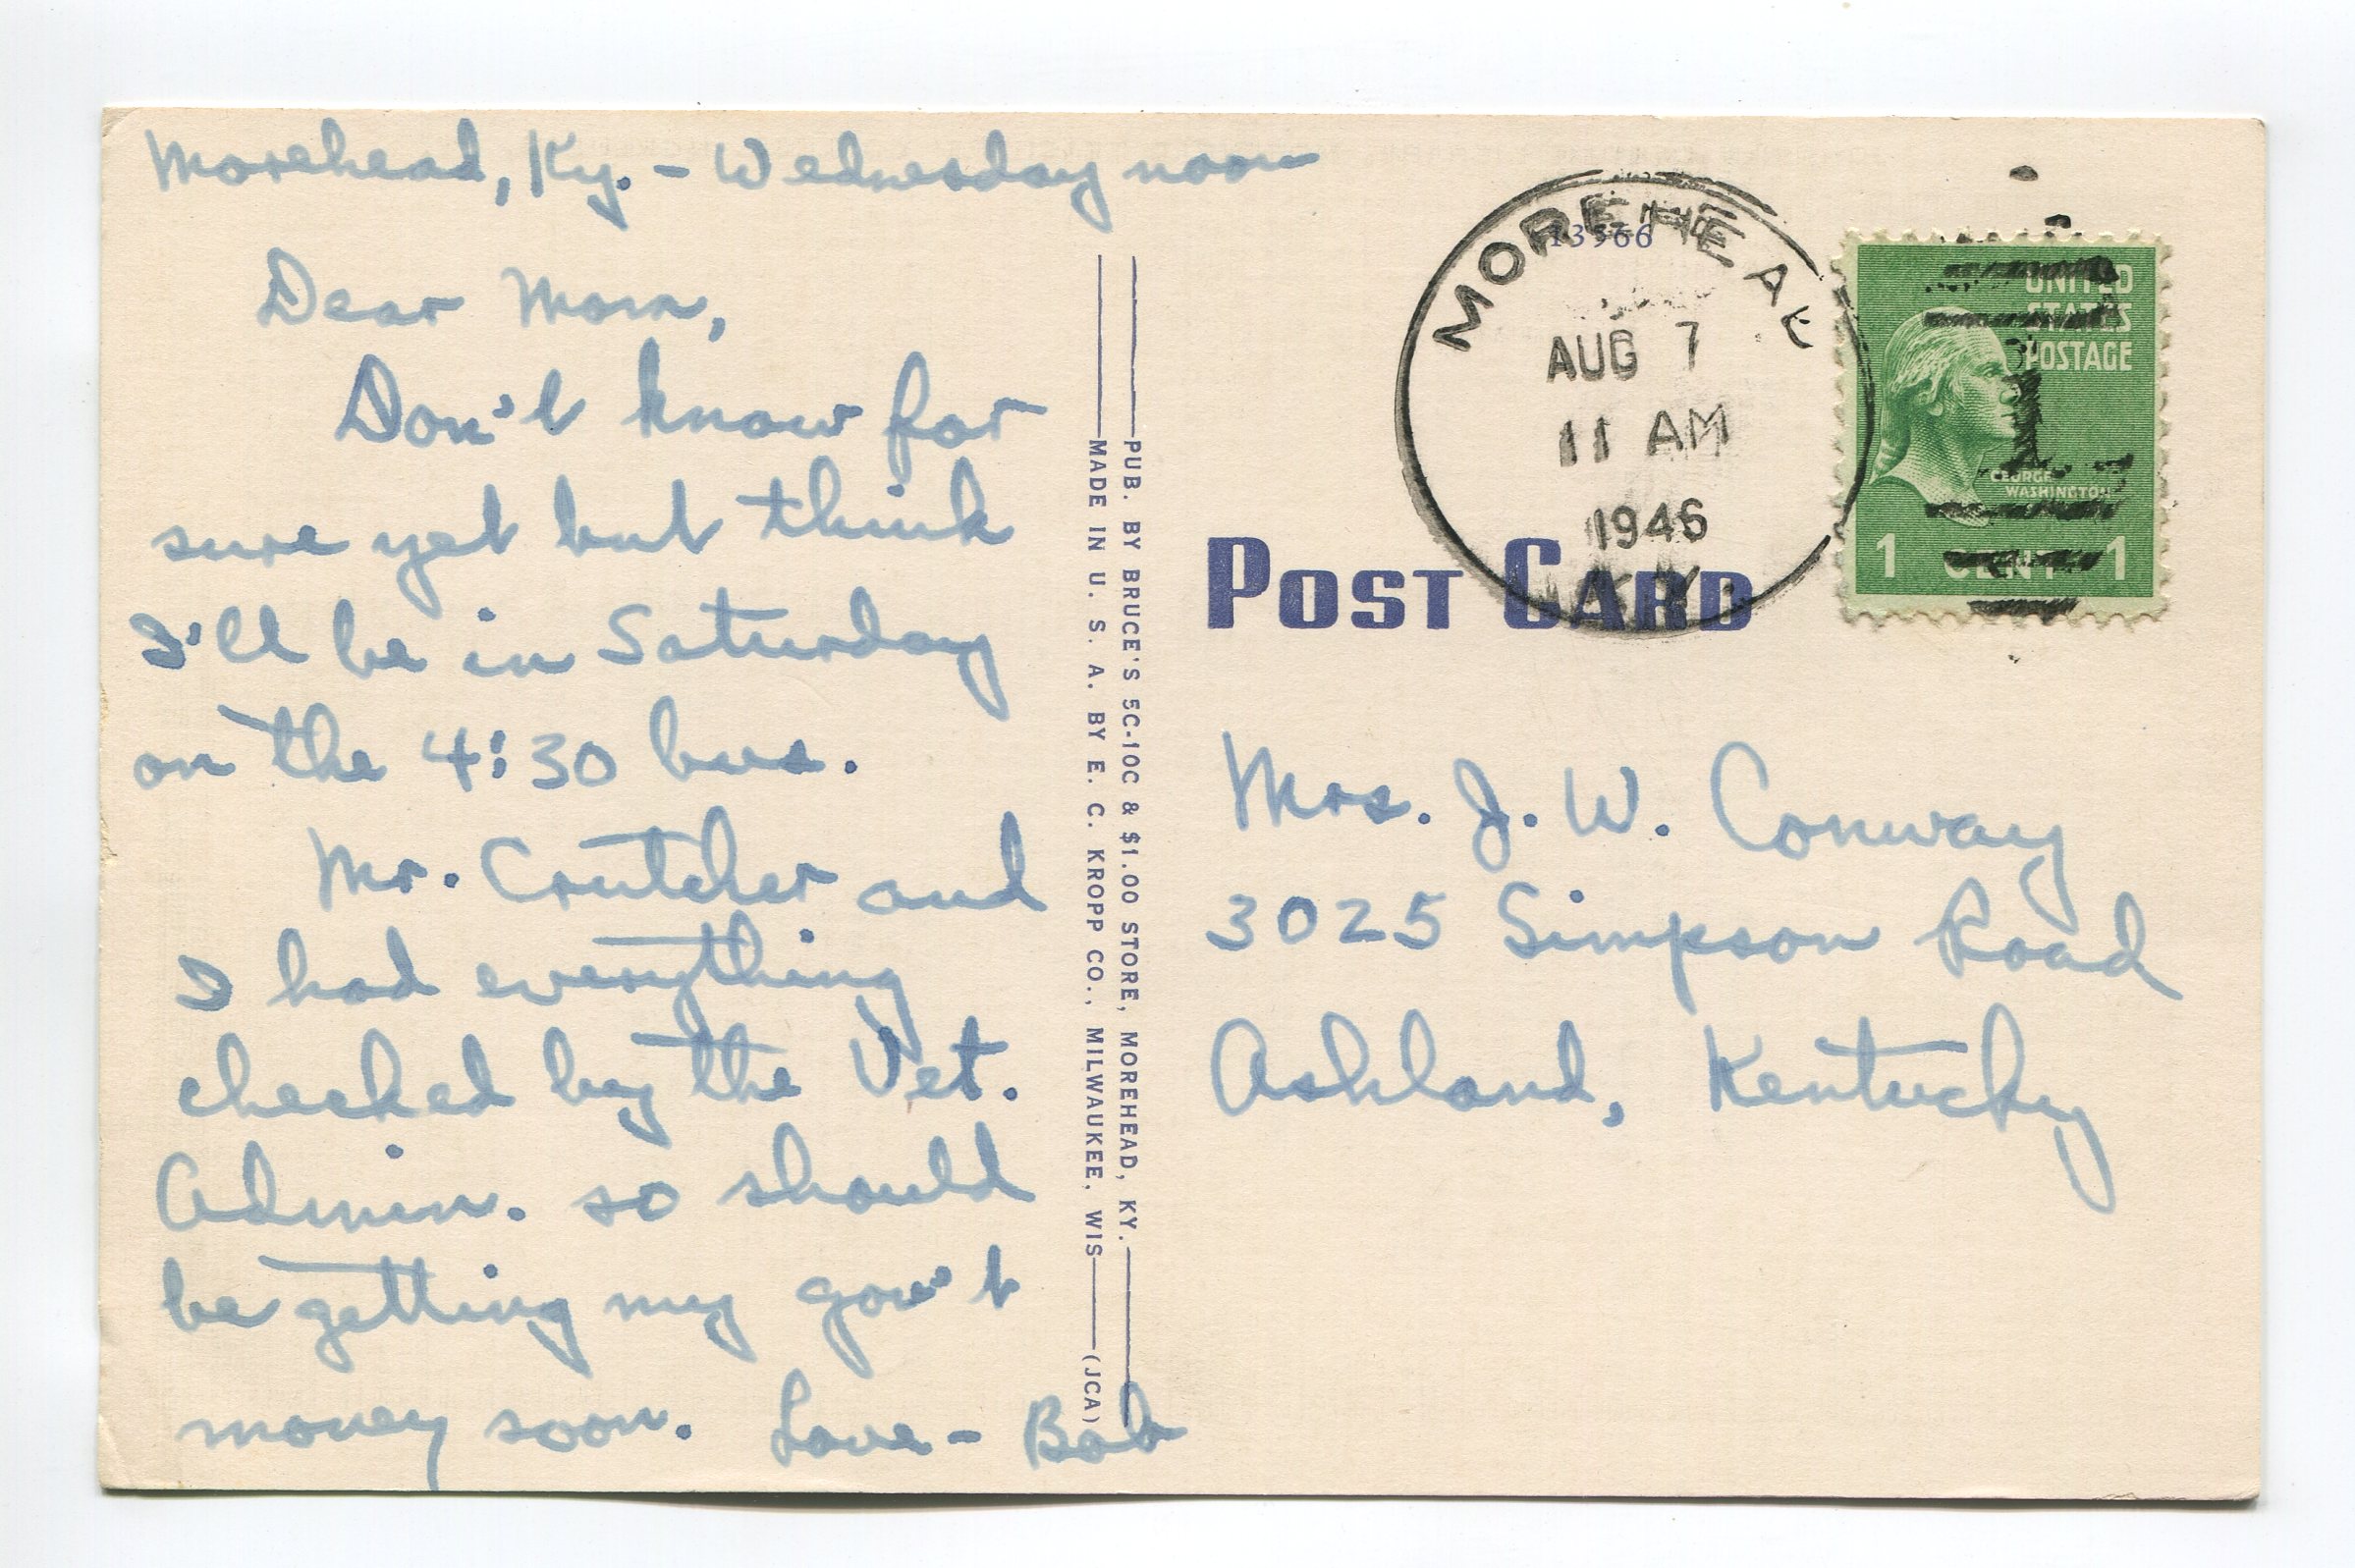 Morehead, Ky. - Wednesday noon
Dear Mom,
Don't know for
sure yet but think
I'll be in Saturday
on the 4:30 bus.
Mr. Crutcher and
I had everything
checked by the Vet.
Admin. so should
be getting my gov't
money soon. Love - Bob
PUB. BY BRUCE'S 5C-10C & $1.00 STORE, MOREHEAD, KY.
MADE IN U. S. A. BY E. C. KROPP CO., MILWAUKEE, WIS (JCA)
13566
MOREHEAD
AUG 7
11 AM
1946
KY.
UNITED
STATES
POSTAGE
GEORGE
WASHINGTON
1 CENT 1
POST CARD
Mrs. J. W. Conway
3025 Simpson Road
Ashland, Kentucky